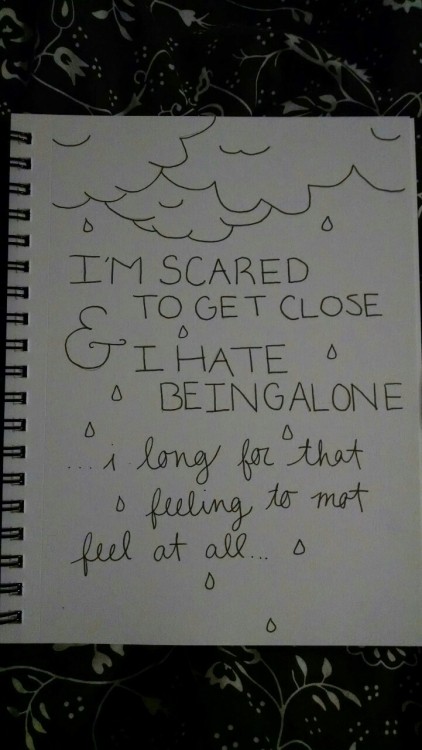 I'M SCARED
TO GET CLOSE
& I HATE
BEINGALONE
...i long for that
feeling to not
feel at all...